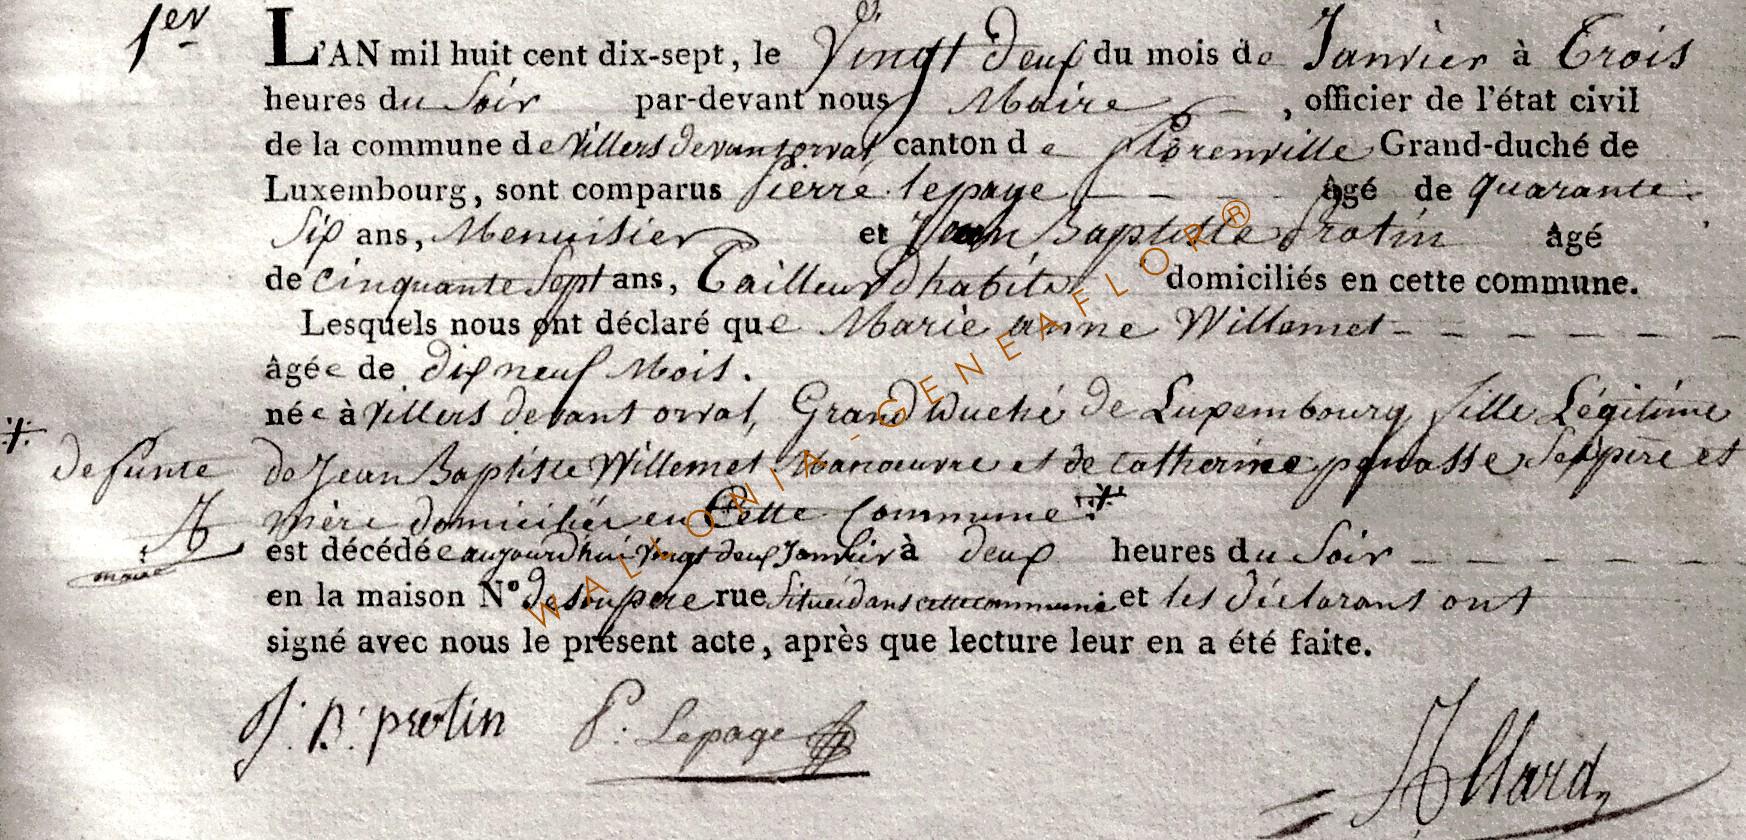 1er
L'AN mil huit cent dix-sept, le Vingt Deux du mois de Janvier à Trois
heures du Soir par-devant nous Maire, officier de l'état civil
de la commune de Villers devant orval, canton de florenville Grand-duché de
Luxembourg, sont comparus Pierre lepage âgé de quarante
Six ans, Menuisier et Jean Baptiste Protin âgé
de cinquante Sept ans, Tailleur D'habits domiciliés en cette commune.
Lesquels nous ont déclaré que Marie anne Willemet
âgée de dix neuf Mois.
née à Villers devant orval, Grand Duché de Luxembourg, fille Légitime
defunte de Jean Baptiste Willemet Manoeuvre et de Catherine Ses père et
mère domiciliés en Cette Commune
est décédée aujourdhui vingt deux Janvier à deux heures du Soir
maire
en la maison N° de son pere rue Située dans cette commune et les déclarans ont
signé avec nous le présent acte, après que lecture leur en a été faite.
J. B. protin P. Lepage Allard
WALLONIA-GENEAFLOR®